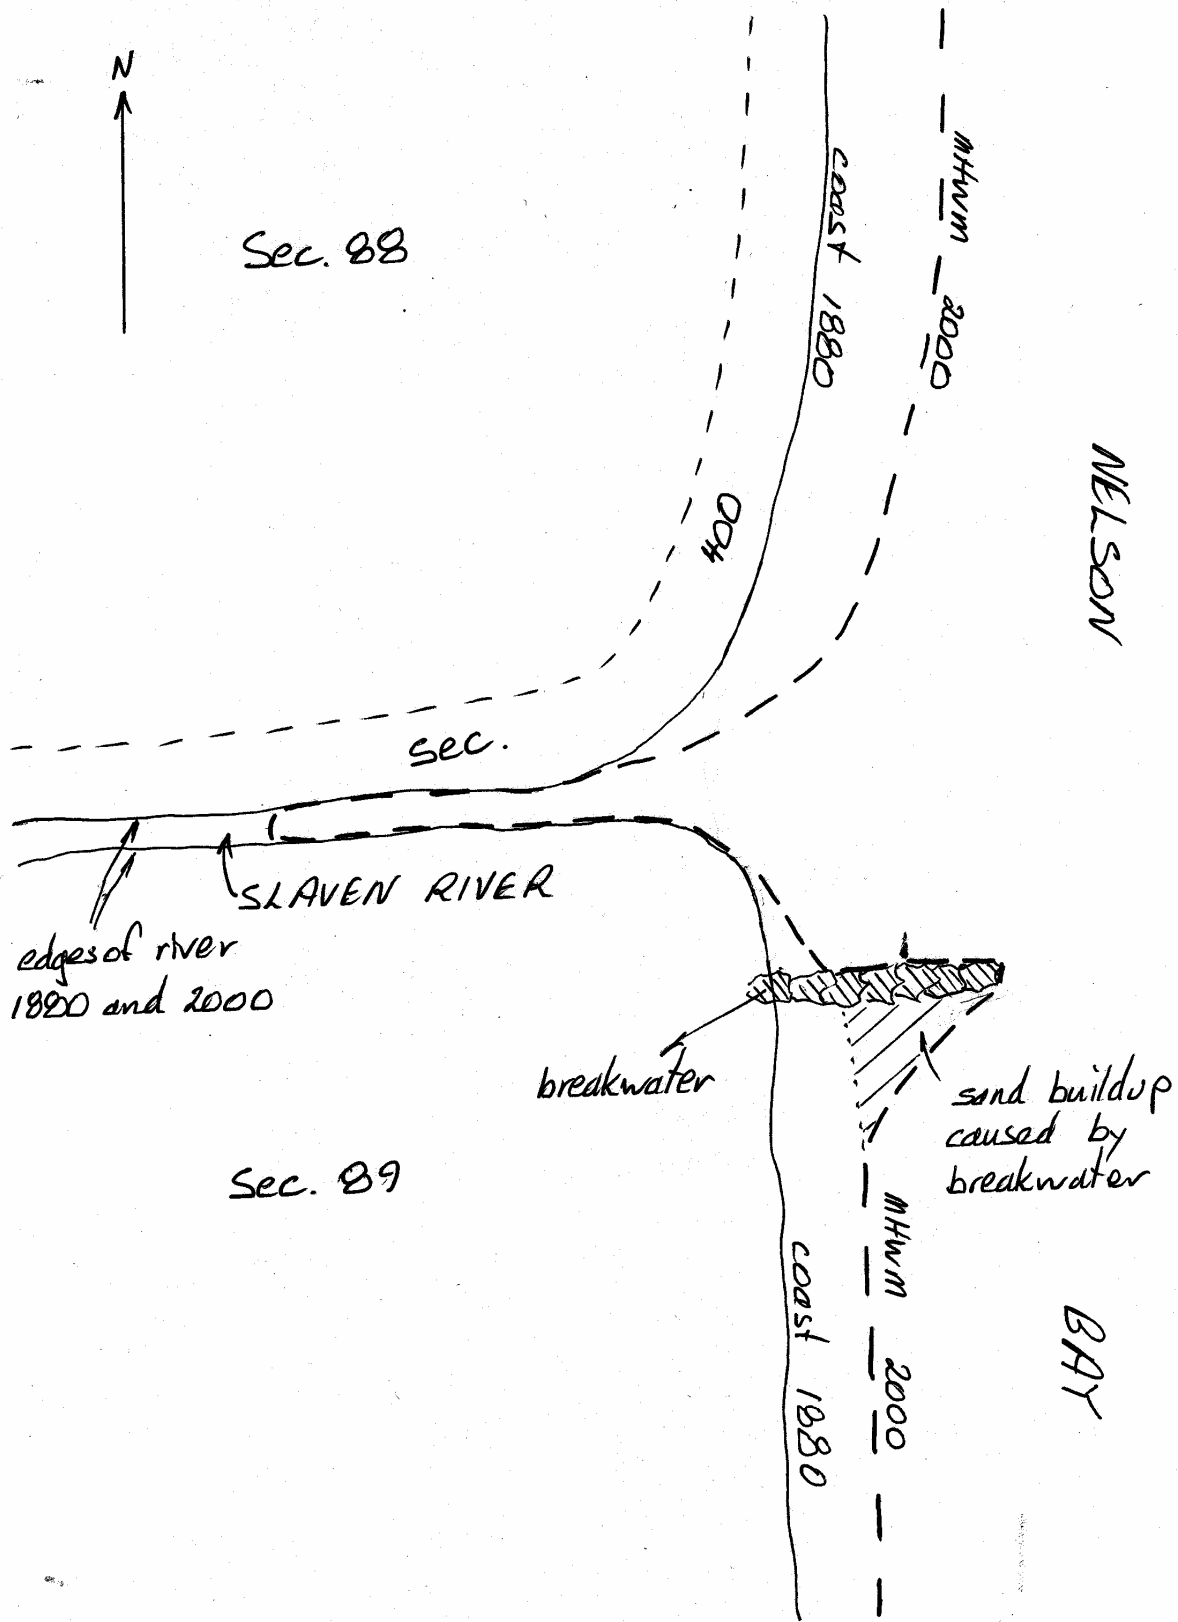 N
Sec. 88
coast 1880
MHWM 2000
NELSON
400
sec.
SLAVEN RIVER
edges of river
1880 and 2000
breakwater
sand buildup
caused by
breakwater
Sec. 89
MHWM 2000
coast 1880
BAY